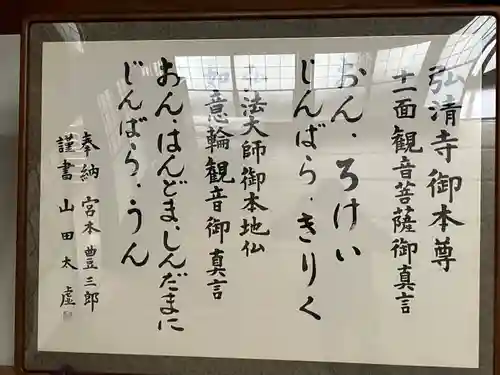 弘清寺御本尊
十一面観音菩薩御真言
おん、ろけい
じんばら、きりく
弘法大師御本地仏
如意輪観音御真言
おん、はんどま、しんだまに
じんばら、うん
奉納 宮本豊三郎
謹書 山田太虚